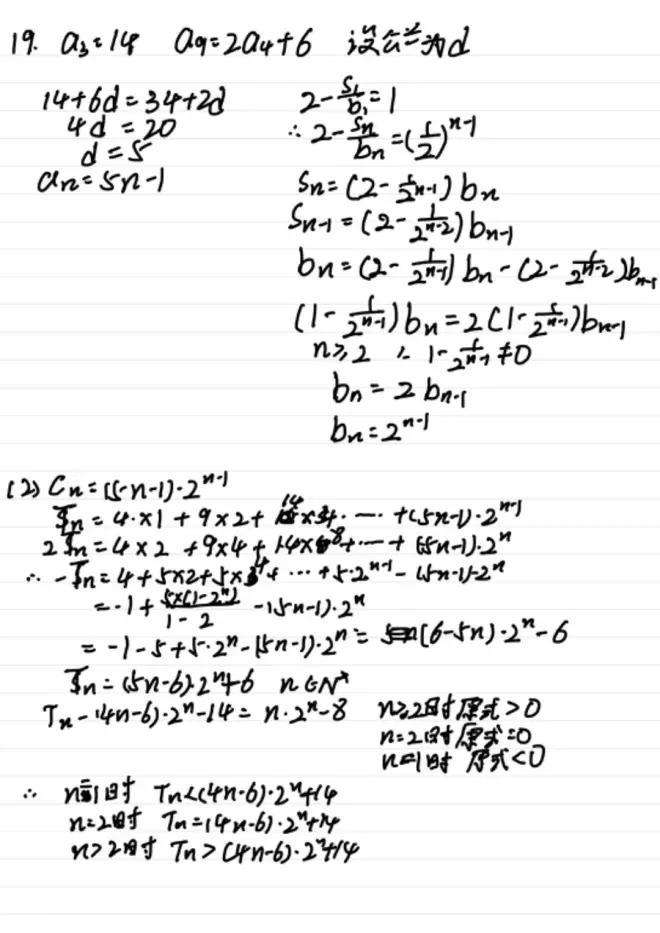 19. a₃=14 a₉=2a₄+6 设公差为d
14+6d=34+2d
4d=20
d=5
aₙ=5n-1
2-S₁/b₁=1
∴ 2-Sₙ/bₙ=(1/2)ⁿ⁻¹
Sₙ=(2-1/2ⁿ⁻¹)bₙ
Sₙ₋₁=(2-1/2ⁿ⁻²)bₙ₋₁
bₙ=(2-1/2ⁿ⁻¹)bₙ-(2-1/2ⁿ⁻²)bₙ₋₁
(1-1/2ⁿ⁻¹)bₙ=2(1-1/2ⁿ⁻¹)bₙ₋₁
n≥2 ∴ 1-1/2ⁿ⁻¹≠0
bₙ=2bₙ₋₁
bₙ=2ⁿ⁻¹
(2) Cₙ=(5n-1)·2ⁿ⁻¹
Tₙ=4·×1+9×2+14×4·…+(5n-1)·2ⁿ⁻¹
2Tₙ=4×2+9×4+14×8+…+(5n-1)·2ⁿ
∴ -Tₙ=4+5×2+5×4+…+5·2ⁿ⁻¹-(5n-1)·2ⁿ
=-1+5×(1-2ⁿ)/1-2-(5n-1)·2ⁿ
=-1-5+5·2ⁿ-(5n-1)·2ⁿ=(6-5n)·2ⁿ-6
Tₙ=(5n-6)·2ⁿ+6 n∈N*
Tₙ-(4n-6)·2ⁿ-14=n·2ⁿ-8 n≥2时原式>0
n=2时原式=0
n=1时 原式<0
∴ n=1时 Tₙ<(4n-6)·2ⁿ+14
n=2时 Tₙ=(4n-6)·2ⁿ+14
n>2时 Tₙ>(4n-6)·2ⁿ+14